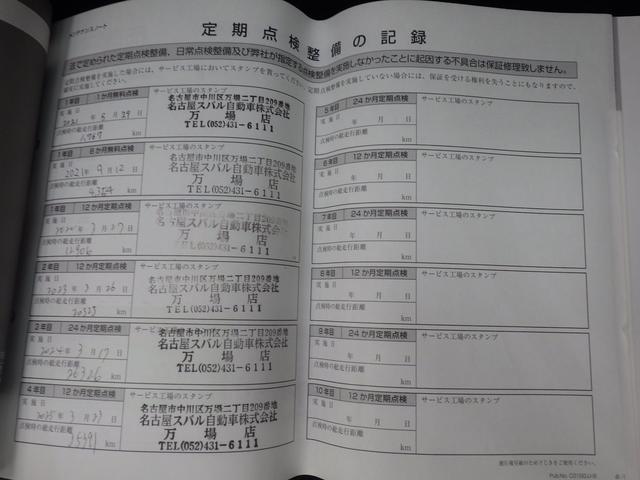 メンテナンスノート
定期点検整備の記録
法で定められた定期点検整備、日常点検整備及び弊社が指定する点検整備を実施しなかったことに起因する不具合は保証修理致しません。
定期点検整備を実施した場合には、サービス工場においてスタンプを貰ってください。
定期点検整備を実施していない場合には、保証を受ける権利を失うこともなりますので、
確実に実施してください。
1年目 1か月無料点検 サービス工場のスタンプ
実施日
2021年 3月29日
点検時の総走行距離
1,767 km
名古屋市中川区万場二丁目209番地
名古屋スバル自動車株式会社
万場店
TEL(052)431-6111
1年目 6か月無料点検 サービス工場のスタンプ
実施日
2021年 9月12日
点検時の総走行距離
4384 km
名古屋市中川区万場二丁目209番地
名古屋スバル自動車株式会社
万場店
TEL(052)431-6111
1年目 12か月定期点検 サービス工場のスタンプ
実施日
年 3月27日
点検時の総走行距離
12906 km
名古屋市中川区万場二丁目209番地
名古屋スバル自動車株式会社
万場店
TEL(052)431-6111
2年目 12か月定期点検 サービス工場のスタンプ
実施日
2023年 3月26日
点検時の総走行距離
20325 km
名古屋市中川区万場二丁目209番地
名古屋スバル自動車株式会社
万場店
TEL(052)431-6111
2年目 24か月定期点検 サービス工場のスタンプ
実施日
2024年 3月17日
点検時の総走行距離
26326 km
名古屋市中川区万場二丁目209番地
名古屋スバル自動車株式会社
万場店
TEL(052)431-6111
4年目 12か月定期点検 サービス工場のスタンプ
実施日
2025年 3月23日
点検時の総走行距離
35591 km
名古屋市中川区万場二丁目209番地
名古屋スバル自動車株式会社
万場店
TEL(052)431-6111
5年目 24か月定期点検 サービス工場のスタンプ
実施日
年 月 日
点検時の総走行距離
km
6年目 12か月定期点検 サービス工場のスタンプ
実施日
年 月 日
点検時の総走行距離
km
7年目 24か月定期点検 サービス工場のスタンプ
実施日
年 月 日
点検時の総走行距離
km
8年目 12か月定期点検 サービス工場のスタンプ
実施日
年 月 日
点検時の総走行距離
km
9年目 24か月定期点検 サービス工場のスタンプ
実施日
年 月 日
点検時の総走行距離
km
10年目 12か月定期点検 サービス工場のスタンプ
実施日
年 月 日
点検時の総走行距離
km